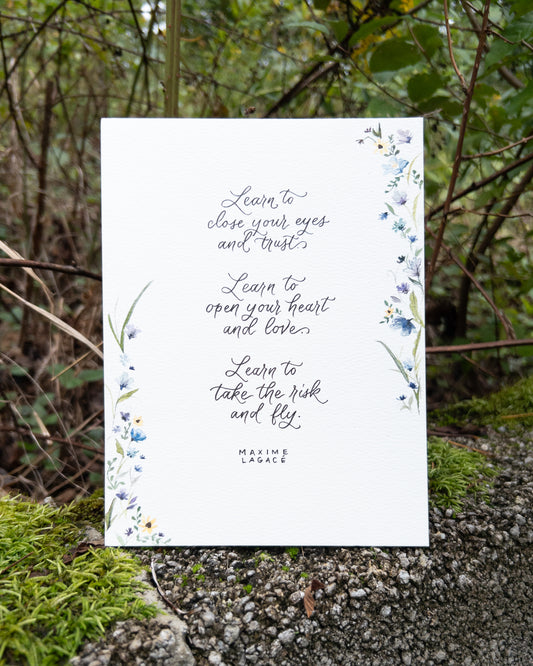 Learn to
close your eyes
and trust.
Learn to
open your heart
and love.
Learn to
take the risk
and fly.
MAXIME
LAGACÉ